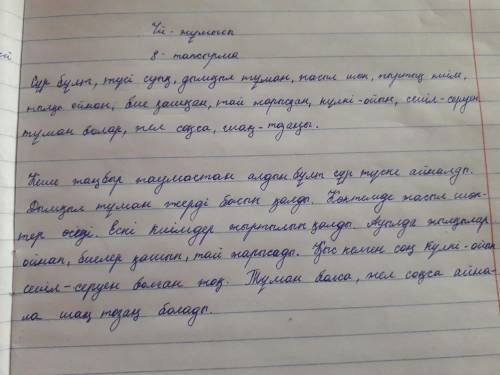 Үй - жұмысы
8 - тапсырма
Сұр бұлт, түсі суық, дымқыл тұман, жасыл шөп, жыртық киім,
жылқы ойнап, бие қашқан, тай жарысқан, күлкі-ойын, сейіл-серуен
тұман болар, жел соқса, шаң-тозаңы.
Кеше жаңбыр жаумастан алдын бұлт сұр түске айналды.
Дымқыл тұман жерді басып қалды. Көктемде жасыл шөп-
тер өседі. Ескі киімдер жыртылып қалды. Ауылда жылқылар
ойнап, биелер қашып, тай жарысады. Қыс келген соң күлкі-ойын
сейіл-серуен болған жоқ. Тұман болса, жел соқса айна-
ла шаң тозаң болады.